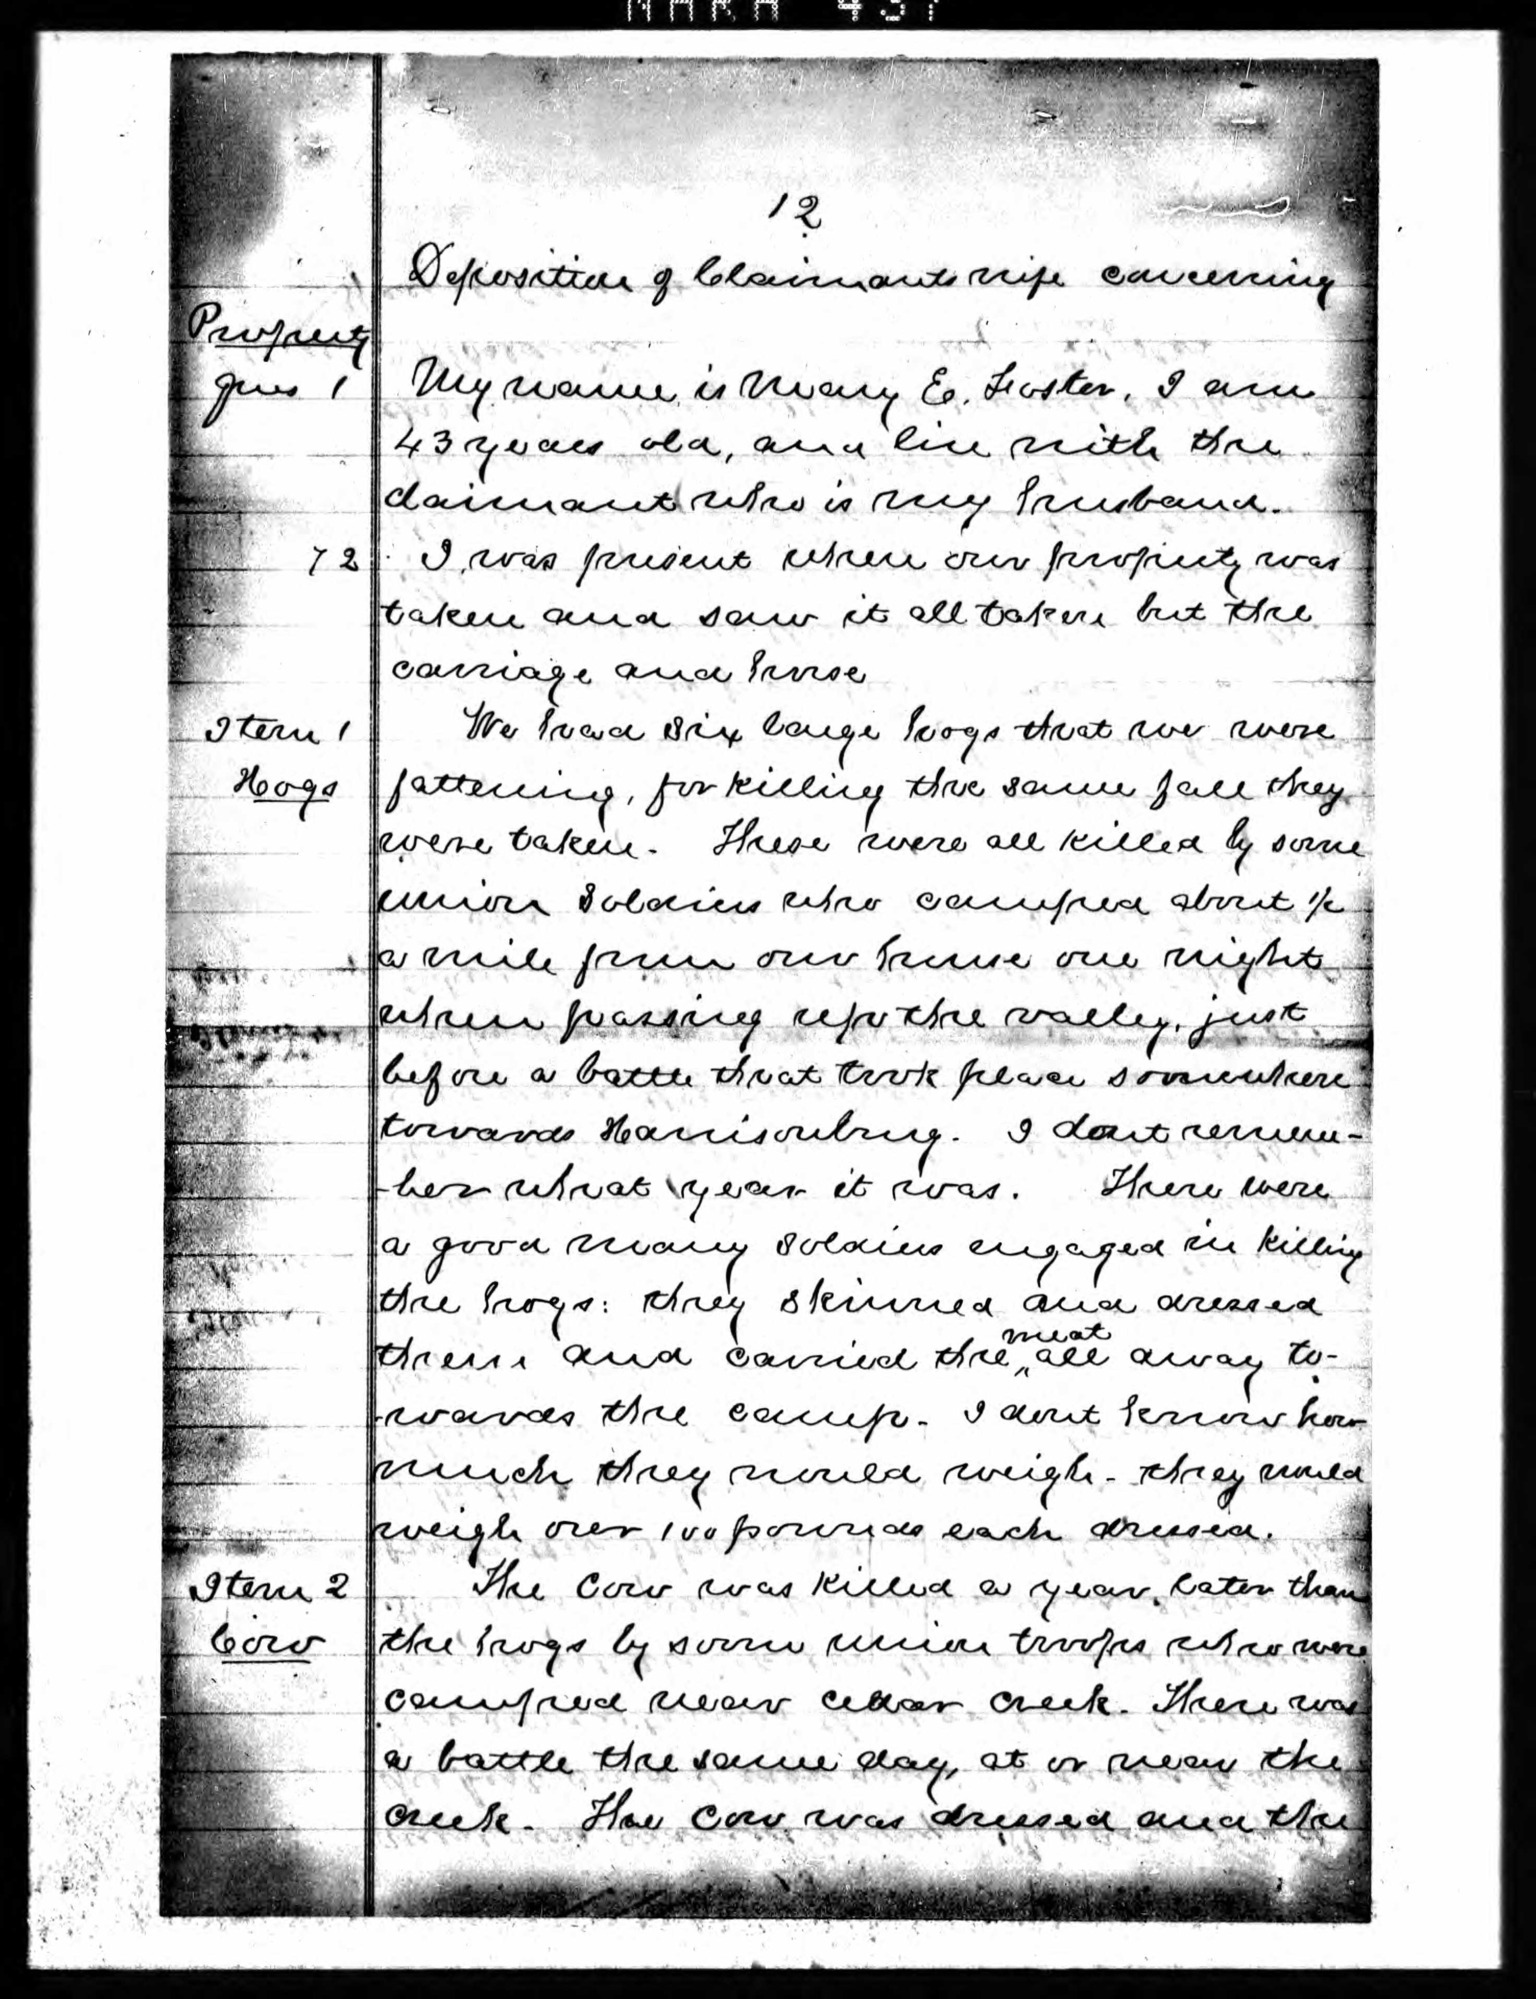 12
Deposition of Claimants wife concerning
Property
Ques 1 My name is Mary E. Foster, I am
43 years old, and live with the
claimant who is my husband.
72 I was present when our property was
taken and saw it all taken but the
carriage and horse
Item 1 We had six large hogs that we were
Hogs fattening, for killing the same fall they
were taken. These were all killed by some
union soldiers who camped about 1/2
a mile from our house one night
when passing up the valley, just
before a battle that took place somewhere
towards Harrisonburg. I dont remem-
-ber what year it was. There were
a good many soldiers engaged in killing
the hogs: they skinned and dressed
them and carried the meat all away to-
-wards the camp. I dont know how
much they would weigh - they would
weigh over 100 pounds each dressed.
Item 2 The Cow was killed a year later than
Cow the hogs by some union troops who were
camped near cedar creek. There was
a battle the same day, at or near the
creek. The Cow was dressed and the